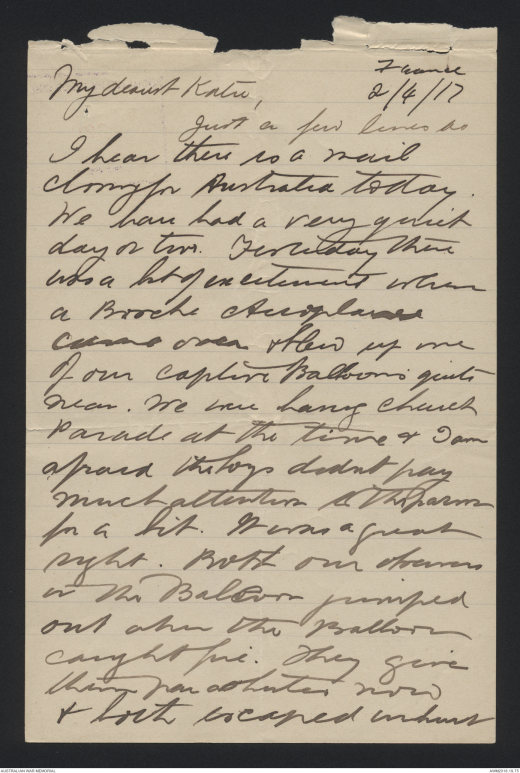 France
My dearest Katie, 2/4/17
Just a few lines as
I hear there is a mail
closing for Australia today.
We have had a very quiet
day or two. Yesterday there
was a bit of excitement when
a Bosche Aeroplane
came over & blew up one
of our captive Balloons quite
near. We were having Church
Parade at the time & I am
afraid the boys didnt pay
much attention to the parson
for a bit. It was a great
sight. Both our observers
in the Balloon jumped
out when the Balloon
caught fire. They give
them parachutes now
& both escaped unhurt
AUSTRALIAN WAR MEMORIAL